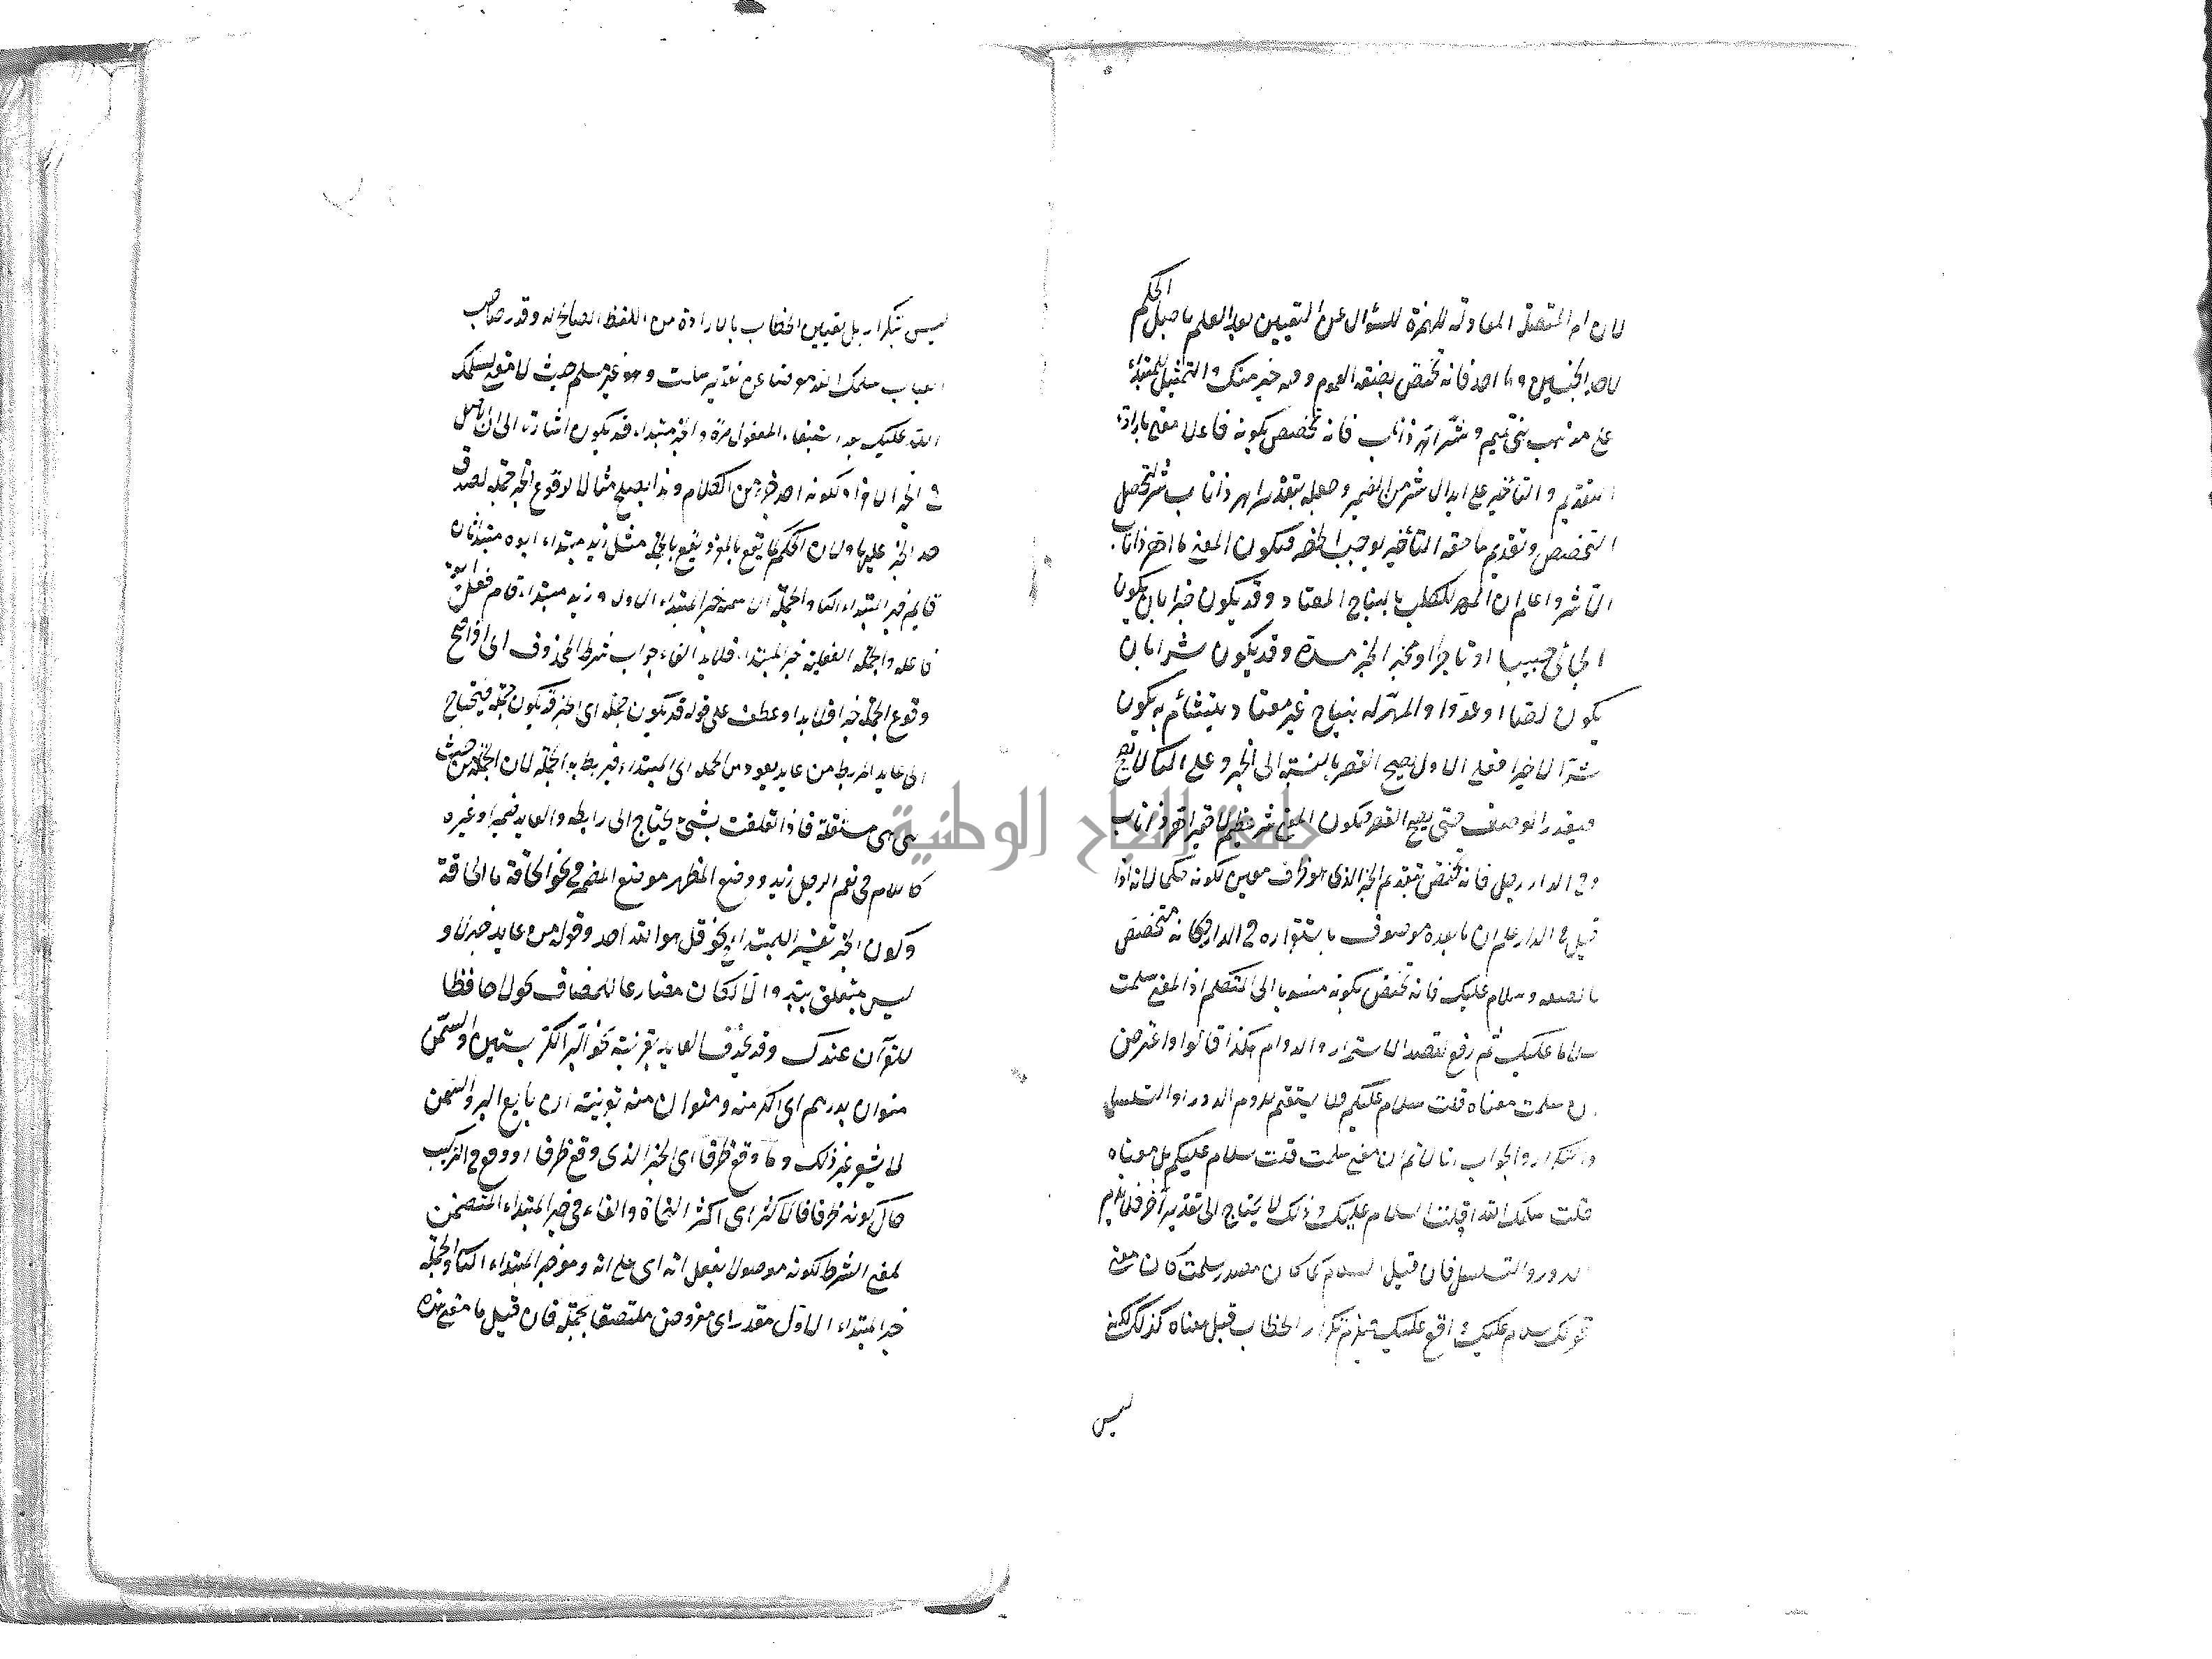 الحكم
لان ام المتصلة المعادلة للهمزة للسؤال عن التعيين بعد العلم باصل
لاحد الجنسين وما احد فانه تخصص بصفة العموم وفيه خير منك والتمثيل للمبتدأ
على مذهب بني تميم وشر اهر ذا ناب فانه تخصص بكونه فاعلا معنى بارادة
التقديم والتأخير على ابدال شر من الضمير وجعله بتقدير اهر ذا ناب شر لتحصل
التخصيص وتقديم ما حقه التأخير يوجب الحصر فيكون المعنى ما اهر ذا ناب
الا شر واعلم ان المهر للكلب بالنباح المعتاد وقد يكون خيرا بان يكون
الجائي حبيبا او تاجرا ومخبر الخير مسرة وقد يكون شرا بان
يكون لصا او عدوا والمهر له بنباح غير معتاد يتشائم به يكون
شرا لا خيرا فعلى الاول يصح القصر بالنسبة الى الخير وعلى الثاني لا يصح
فيقدر الوصف حتى يصح القصر فيكون المعنى شر عظيم لا حقير اهر ذا ناب
وفي الدار رجل فانه تخصص بتقديم الخبر الذي هو ظرف معين لكونه حكما لانه اذا
قيل في الدار علم ان ما بعده موصوف باستقراره في الدار فكانه متخصص
بالصفة وسلام عليك فانه تخصص بكونه منسوبا الى المتكلم اذ المعنى سلمت
سلاما عليك ثم رفع لقصد الاستمرار والدوام هكذا قالوا واعترض
بان سلمت معناه قلت سلام عليكم فلا يستقيم للزوم الدور او التسلسل
والتكرار والجواب انا لا نم ان معنى سلمت قلت سلام عليكم بل معناه
قلت سلمك الله او قلت السلام عليك وذلك لا يحتاج الى تقدير آخر فلا يلزم
الدور والتسلسل فان قيل السلام لما كان مصدر سلمت كان معنى
قولك سلام عليك واقع عليك فيلزم تكرار الخطاب قيل معناه كذلك لكنه
ليس
ليس بتكرار بل تعيين الخطاب بالارادة من اللفظ الصالح له وقدر صاحب
اللباب سلمك الله موضعا عن تقدير سلمت وهو غير مسلم حيث لا معنى لسلمك
الله عليك بعد استيفاء المفعول مرة والخبر مبتداء قد يكون اشارة الى ان الاصل
في الخبر الافراد لكونه احد جزئي من الكلام وهذا يصلح مثالا لوقوع الخبر جملة لصدق
حد الخبر عليها ولان الحكم كما يقع بالمفرد يقع بالجملة مثل زيد مبتداء ابوه مبتدا ثان
قايم خبر المبتداء الثاني والجملة الاسمية خبر المبتداء الاول وزيد مبتداء قام فعل ابوه
فاعله والجملة الفعلية خبر المبتداء فلابد الفاء جواب شرط المحذوف اى اذا صح
وقوع الجملة خبرا فلا بد او عطف على قوله قد يكون جملة اى الخبر قد يكون جملة فيحتاج
الى عايد للربط من عايد يعود من الجملة الى المبتداء فيربط به الجملة لان الجملة من حيث
هي هي مستقلة فاذا تعلقت بشئ يحتاج الى رابطة والعايد ضميرا وغيره
كاللام في نعم الرجل زيد ووضع المظهر موضع المضمر في نحو الحاقة ما الحاقة
وكون الخبر تفسيرا للمبتداء نحو قل هو الله احد وقوله من عايد خبر لا و
ليس بمتعلق ببد والا لكان مضارعا للمضاف كقولك لا حافظا
للقرآن عندك وقد يحذف العايد بقرينة نحو البر الكر بستين والسمن
منوان بدرهم اى الكر منه ومنوان منه بقرينة ان بايع البر والسمن
لا يشعر غير ذلك وما وقع ظرفا اى الخبر الذى وقع ظرفا او وقع في التركيب
حال كونه ظرفا فالاكثر اى اكثر النحاة والفاء في خبر المبتداء المتضمن
لمعنى الشرط لكونه موصولا بفعل انه اى على انه وهو خبر المبتداء الثاني والجملة
خبر المبتداء الاول مقدر اى مفروض ملتصقا بجملة فان قيل ما معنى هذه
جامعة النجاح الوطنية